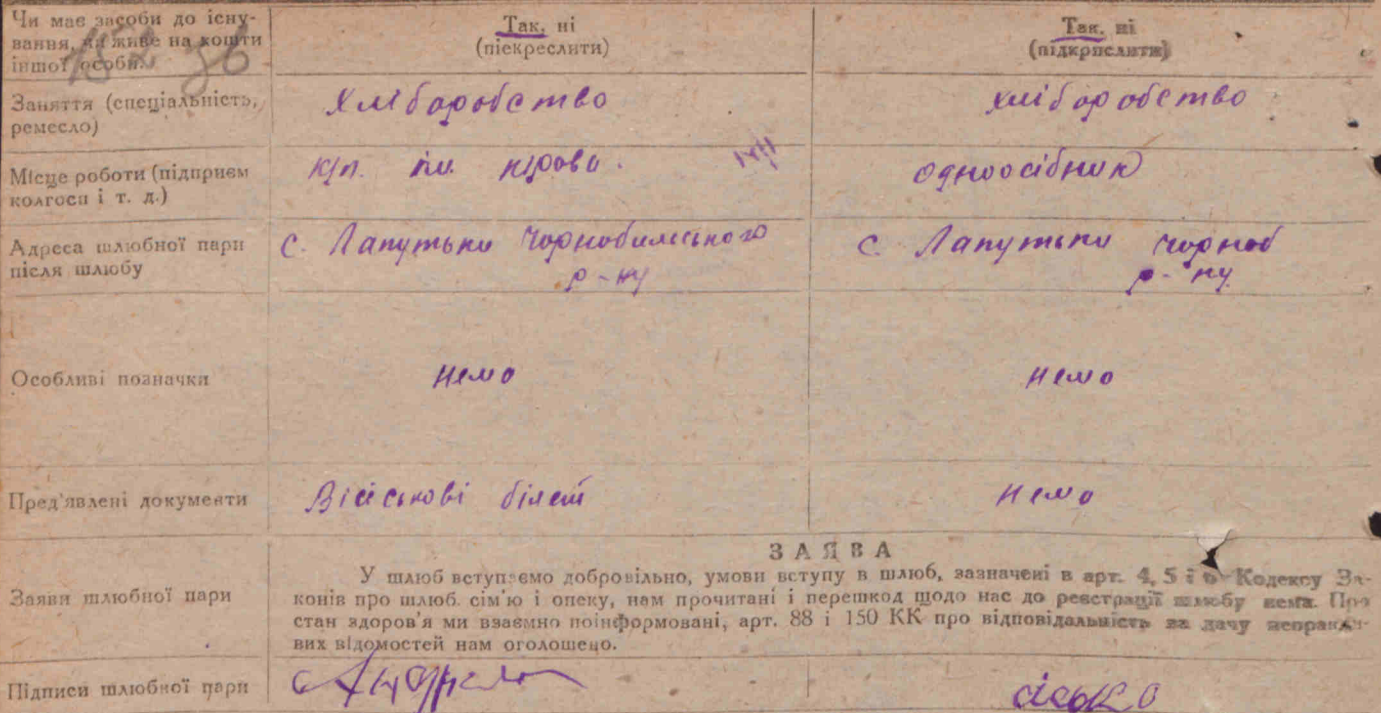 Чи має засоби до існу-
вання, чи живе на кошти
іншої особи.
Так, ні
(піекреслити)
Так, ні
(підкрислити)
Заняття (спеціальність,
ремесло)
Хліборобство
хліборобство
Місце роботи (підприєм
колгосп і т. д.)
к/п. ім. кірова.
одноосібник
Адреса шлюбної пари
після шлюбу
С. Лапутьки Чорнобильського
р-ну
С. Лапутьки Чорноб
р-ну
Особливі позначки
немо
немо
Пред'явлені документи
Військові білет
немо
Заяви шлюбної пари
ЗАЯВА
У шлюб вступаємо добровільно, умови вступу в шлюб, зазначені в арт. 4, 5 і 6 Кодексу За-
конів про шлюб. сім'ю і опеку, нам прочитані і перешкод щодо нас до реєстрації шлюбу нема. Про
стан здоров'я ми взаємно поінформовані, арт. 88 і 150 КК про відповідальність за дачу неправди-
вих відомостей нам оголошено.
Підписи шлюбної пари